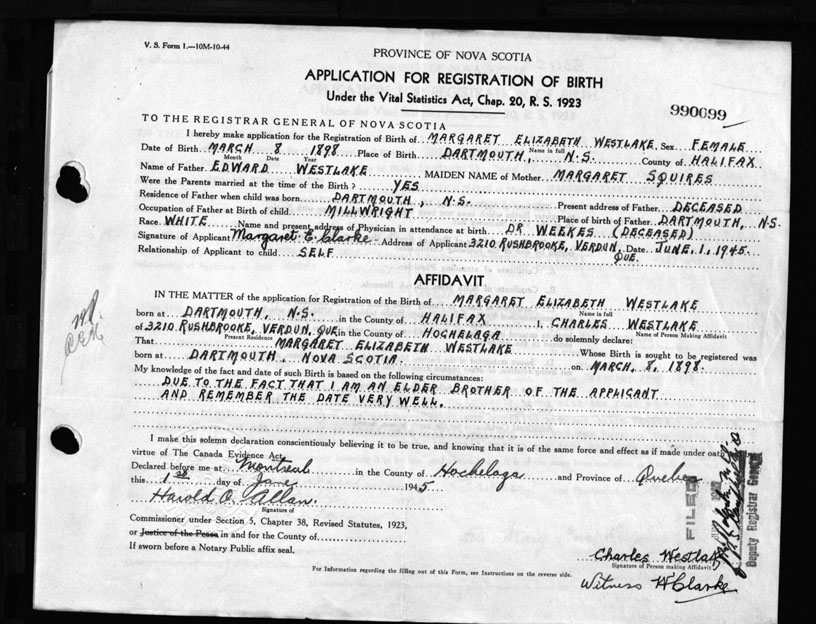 V. S. Form 1.—10M-10-44
PROVINCE OF NOVA SCOTIA
APPLICATION FOR REGISTRATION OF BIRTH
Under the Vital Statistics Act, Chap. 20, R. S. 1923
990099
TO THE REGISTRAR GENERAL OF NOVA SCOTIA
I hereby make application for the Registration of Birth of MARGARET ELIZABETH WESTLAKE Sex FEMALE
Name in full
Date of Birth MARCH 8 1898 Place of Birth DARTMOUTH, N.S. County of HALIFAX
Month Date Year
Name of Father EDWARD WESTLAKE MAIDEN NAME of Mother MARGARET SQUIRES
Were the Parents married at the time of the Birth? YES
Residence of Father when child was born DARTMOUTH, N.S. Present address of Father DECEASED
Occupation of Father at Birth of child MILLWRIGHT Place of birth of Father DARTMOUTH, N.S.
Race WHITE Name and present address of Physician in attendance at birth DR WEEKES (DECEASED)
Signature of Applicant Margaret E. Clarke Address of Applicant 3210 RUSHBROOKE, VERDUN, QUE. Date JUNE, 1, 1945.
Relationship of Applicant to child SELF
AFFIDAVIT
IN THE MATTER of the application for Registration of the Birth of MARGARET ELIZABETH WESTLAKE
Name in full
born at DARTMOUTH, N.S. in the County of HALIFAX I, CHARLES WESTLAKE
Name of Person Making Affidavit
of 3210 RUSHBROOKE, VERDUN, QUE in the County of HOCHELAGA do solemnly declare:
Present Residence
That MARGARET ELIZABETH WESTLAKE Whose Birth is sought to be registered was
born at DARTMOUTH, NOVA SCOTIA. on MARCH, 8, 1898.
My knowledge of the fact and date of such Birth is based on the following circumstances:
DUE TO THE FACT THAT I AM AN ELDER BROTHER OF THE APPLICANT
AND REMEMBER THE DATE VERY WELL.
I make this solemn declaration conscientiously believing it to be true, and knowing that it is of the same force and effect as if made under oath
virtue of The Canada Evidence Act.
Declared before me at Montreal in the County of Hochelaga and Province of Quebec
this 1st day of June 1945
Harold O. Allan.
Signature of
Commissioner under Section 5, Chapter 38, Revised Statutes, 1923,
or Justice of the Peace in and for the County of
If sworn before a Notary Public affix seal.
Charles Westlake
Signature of Person making Affidavit
Witness W Clarke
For Information regarding the filling out of this Form, see Instructions on the reverse side.
FILED
Deputy Registrar General